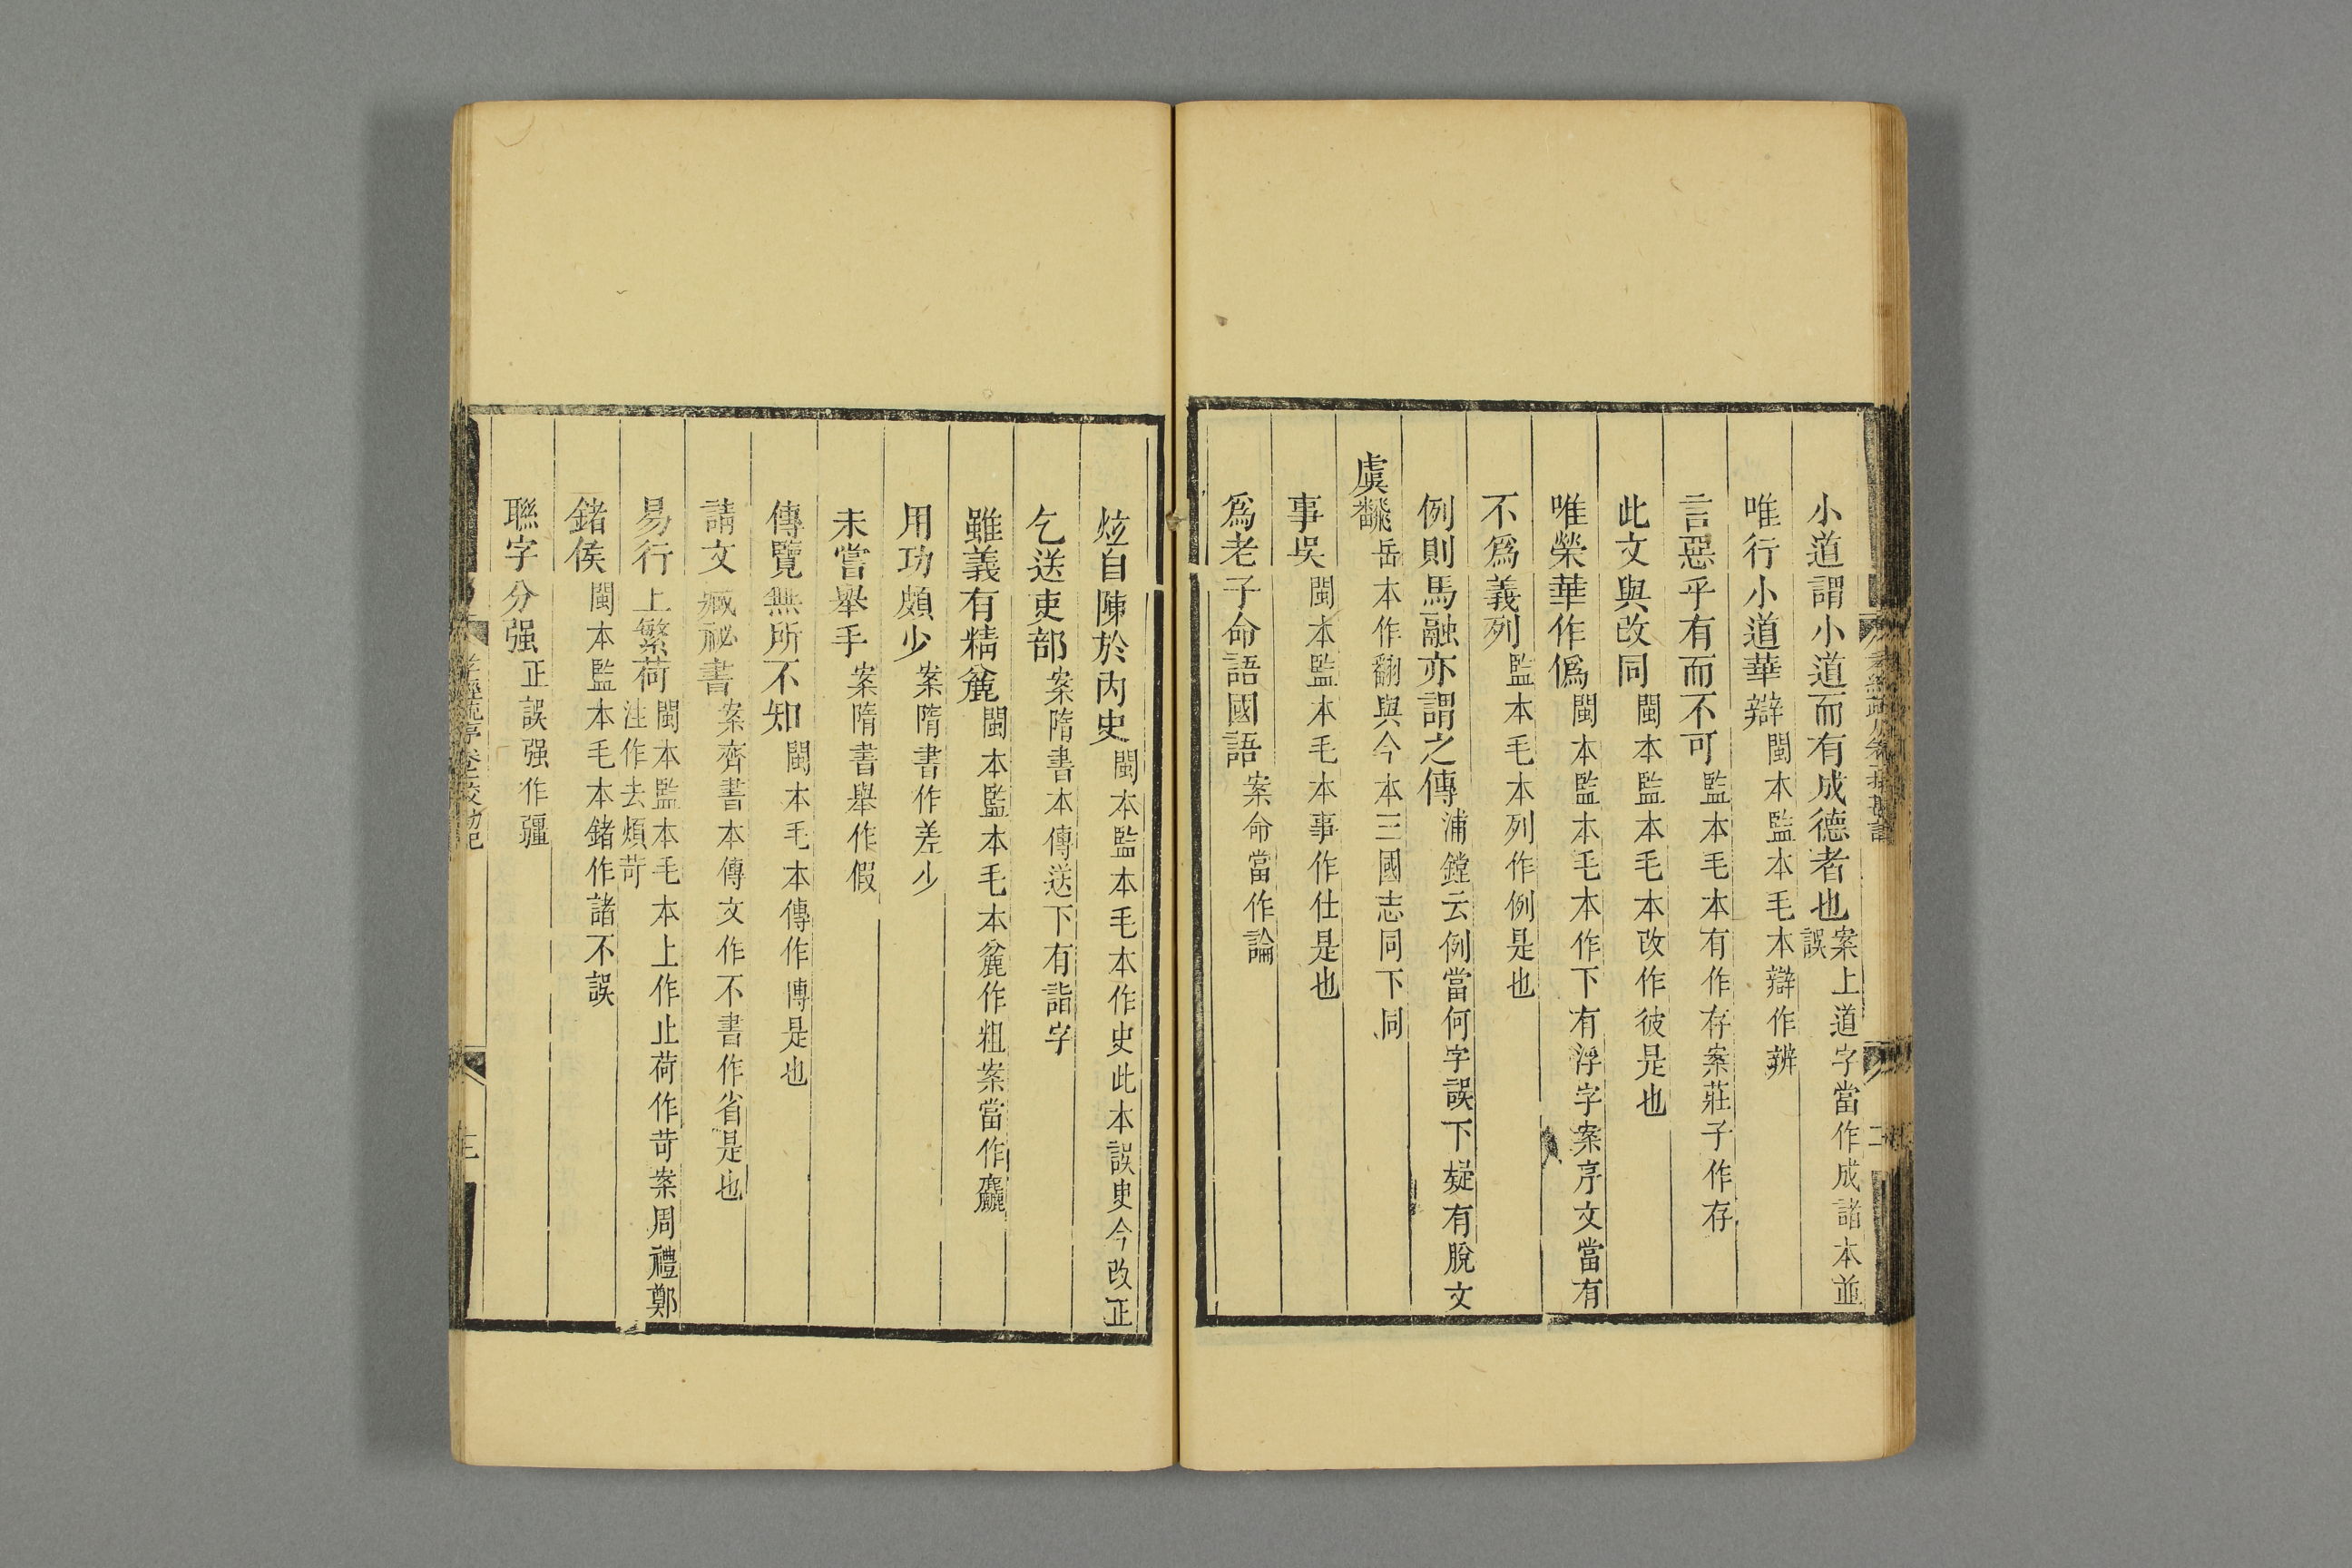 小道謂小道而有成德者也案上道字當作成諸本並誤
唯行小道華辯閩本監本毛本辯作辨
言惡乎有而不可監本毛本有作存案莊子作存
此文與改同閩本監本毛本改作彼是也
唯榮華作僞閩本監本毛本作下有浮字案序文當有
不爲義列監本毛本列作例是也
例則馬融亦謂之傳浦鏜云例當何字誤下疑有脫文
虞飜岳本作翻與今本三國志同下同
事吳閩本監本毛本事作仕是也
爲老子命語國語案命當作論
炫自陳於內史閩本監本毛本作史此本誤吏今改正
乞送吏部案隋書本傳送下有詣字
雖義有精麄閩本監本毛本麄作粗案當作麤
用功頗少案隋書作差少
未嘗舉手案隋書舉作假
傳覽無所不知閩本毛本傳作博是也
請文藏祕書案齊書本傳文作不書作省是也
易行上繁荷閩本監本毛本上作止荷作苛案周禮鄭注作去煩苛
鍺侯閩本監本毛本鍺作諸不誤
聯字分强正誤强作疆
孝經疏序卷校勘記
三